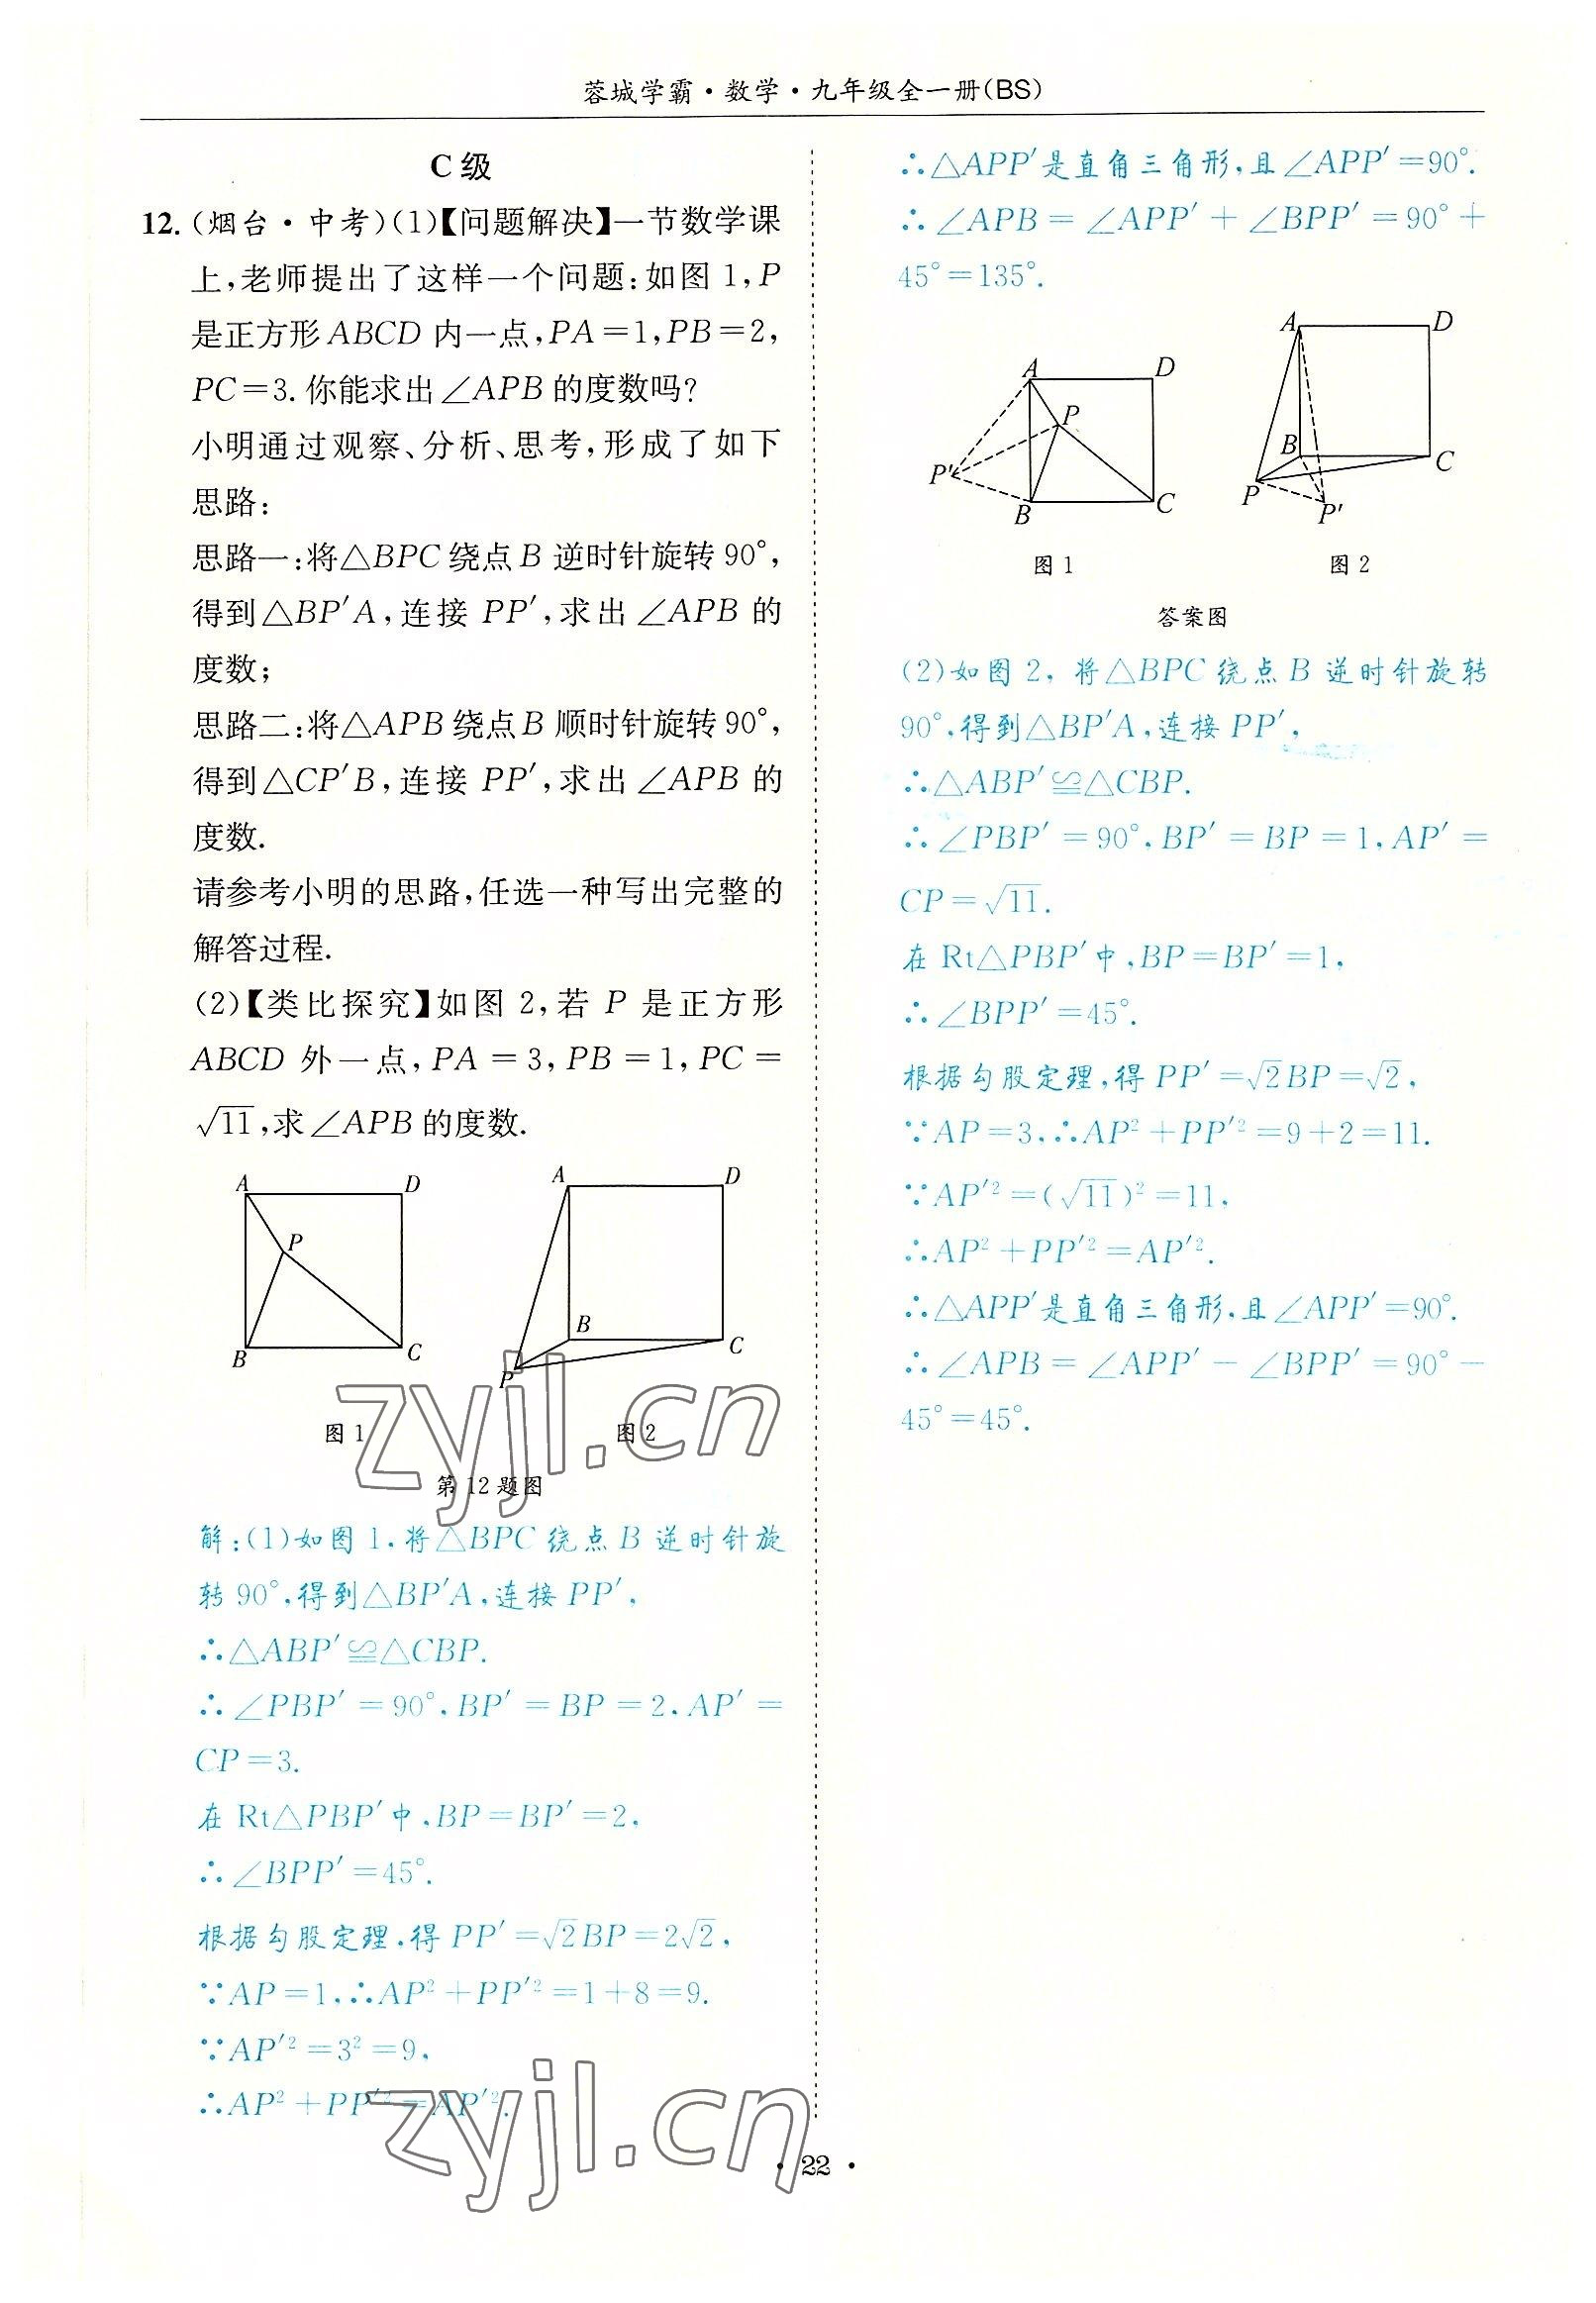 蓉城学霸·数学·九年级全一册(BS)
C级
12.(烟台·中考)(1)【问题解决】一节数学课
上,老师提出了这样一个问题:如图1,P
是正方形ABCD内一点,PA=1,PB=2,
PC=3.你能求出∠APB的度数吗?
小明通过观察、分析、思考,形成了如下
思路:
思路一:将△BPC绕点B逆时针旋转90°,
得到△BP′A,连接PP′,求出∠APB的
度数;
思路二:将△APB绕点B顺时针旋转90°,
得到△CP′B,连接PP′,求出∠APB的
度数.
请参考小明的思路,任选一种写出完整的
解答过程.
(2)【类比探究】如图2,若P是正方形
ABCD外一点,PA=3,PB=1,PC=
√11,求∠APB的度数.
A D P B C
A D B C P
图1 图2
第12题图
解:(1)如图1,将△BPC绕点B逆时针旋
转90°,得到△BP′A,连接PP′,
∴△ABP′≌△CBP.
∴∠PBP′=90°,BP′=BP=2,AP′=
CP=3.
在Rt△PBP′中,BP=BP′=2,
∴∠BPP′=45°.
根据勾股定理,得PP′=√2BP=2√2,
∵AP=1,∴AP²+PP′²=1+8=9.
∵AP′²=3²=9,
∴AP²+PP′²=AP′².
∴△APP′是直角三角形,且∠APP′=90°.
∴∠APB=∠APP′+∠BPP′=90°+
45°=135°.
A D P P′ B C
A D B C P P′
图1 图2
答案图
(2)如图2,将△BPC绕点B逆时针旋转
90°,得到△BP′A,连接PP′,
∴△ABP′≌△CBP.
∴∠PBP′=90°,BP′=BP=1,AP′=
CP=√11.
在Rt△PBP′中,BP=BP′=1,
∴∠BPP′=45°.
根据勾股定理,得PP′=√2BP=√2,
∵AP=3,∴AP²+PP′²=9+2=11.
∵AP′²=(√11)²=11,
∴AP²+PP′²=AP′².
∴△APP′是直角三角形,且∠APP′=90°.
∴∠APB=∠APP′-∠BPP′=90°-
45°=45°.
zyjl.cn
zyjl.cn
·22·